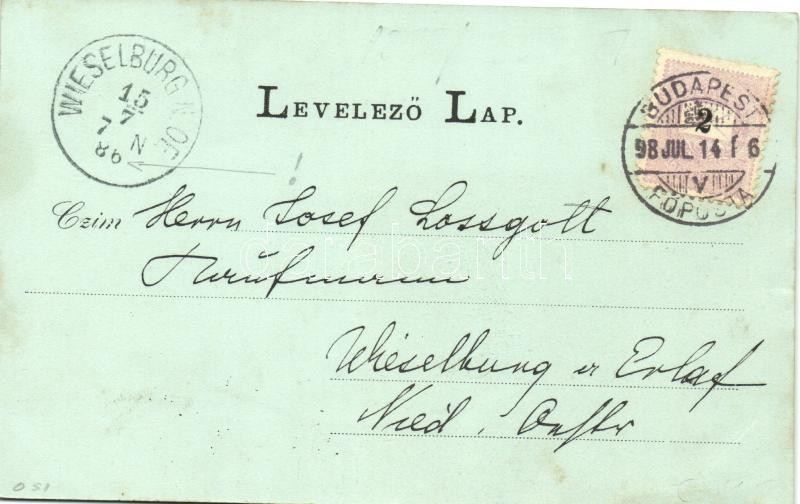 WIESELBURG N.OE
15
7
7 N
86
!
LEVELEZŐ LAP.
BUDAPEST
2
98 JUL. 14 f 6
V
FŐPOSTA
Czim Herrn Josef Lossgott
Kaufmann
Wieselburg a Erlaf
Nied. Oestr
051